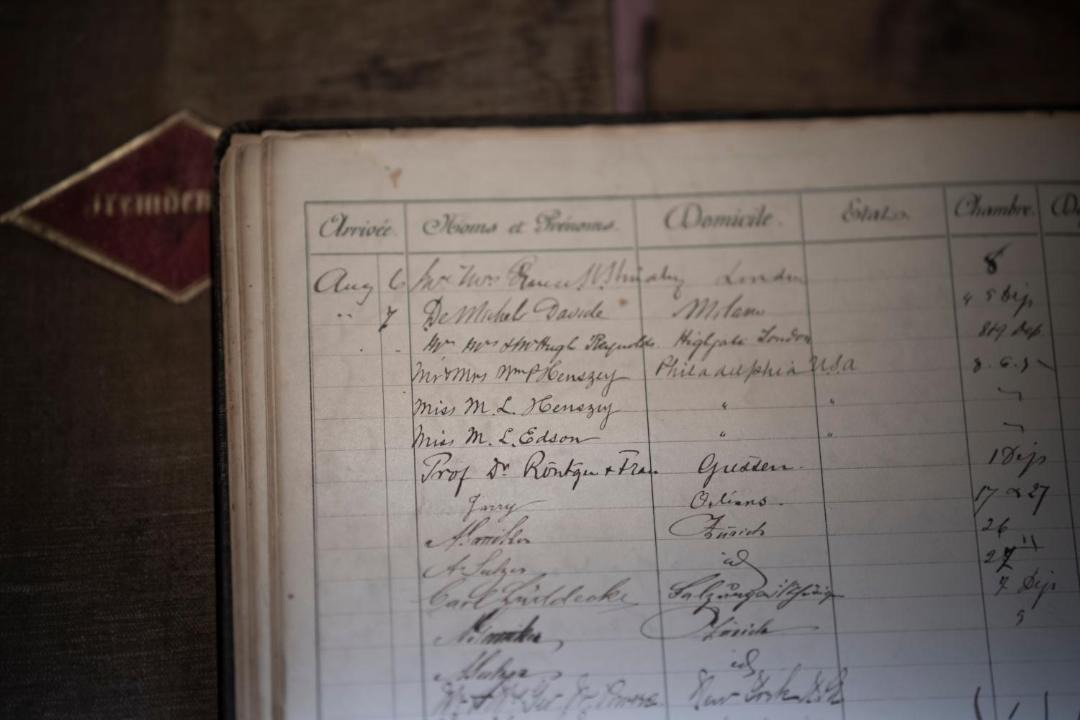 Fremden
Arrivée. Noms et Prénoms. Domicile. Etat. Chambre.
Aug 6 Mr & Mrs London 8
" 7 De Micheli Davide Milano " 5 Dej
Mr Mrs & Mr Hugh Reynolds. Highgate London 8 & 9 Dep
Mr & Mrs Wm P Henszey Philadelphia USA 8.6.5
Miss M. L. Henszey " "
Miss M. L. Edson " "
Prof Dr Röntgen & Frau Giessen. 1 Dej
Jarry Orléans. 17 & 27
Zürich 26
A. Sulzer id 27 "
Carl Lüddecke Salzungen i/Thürig 7 Dej
Zürich 5
id
New York